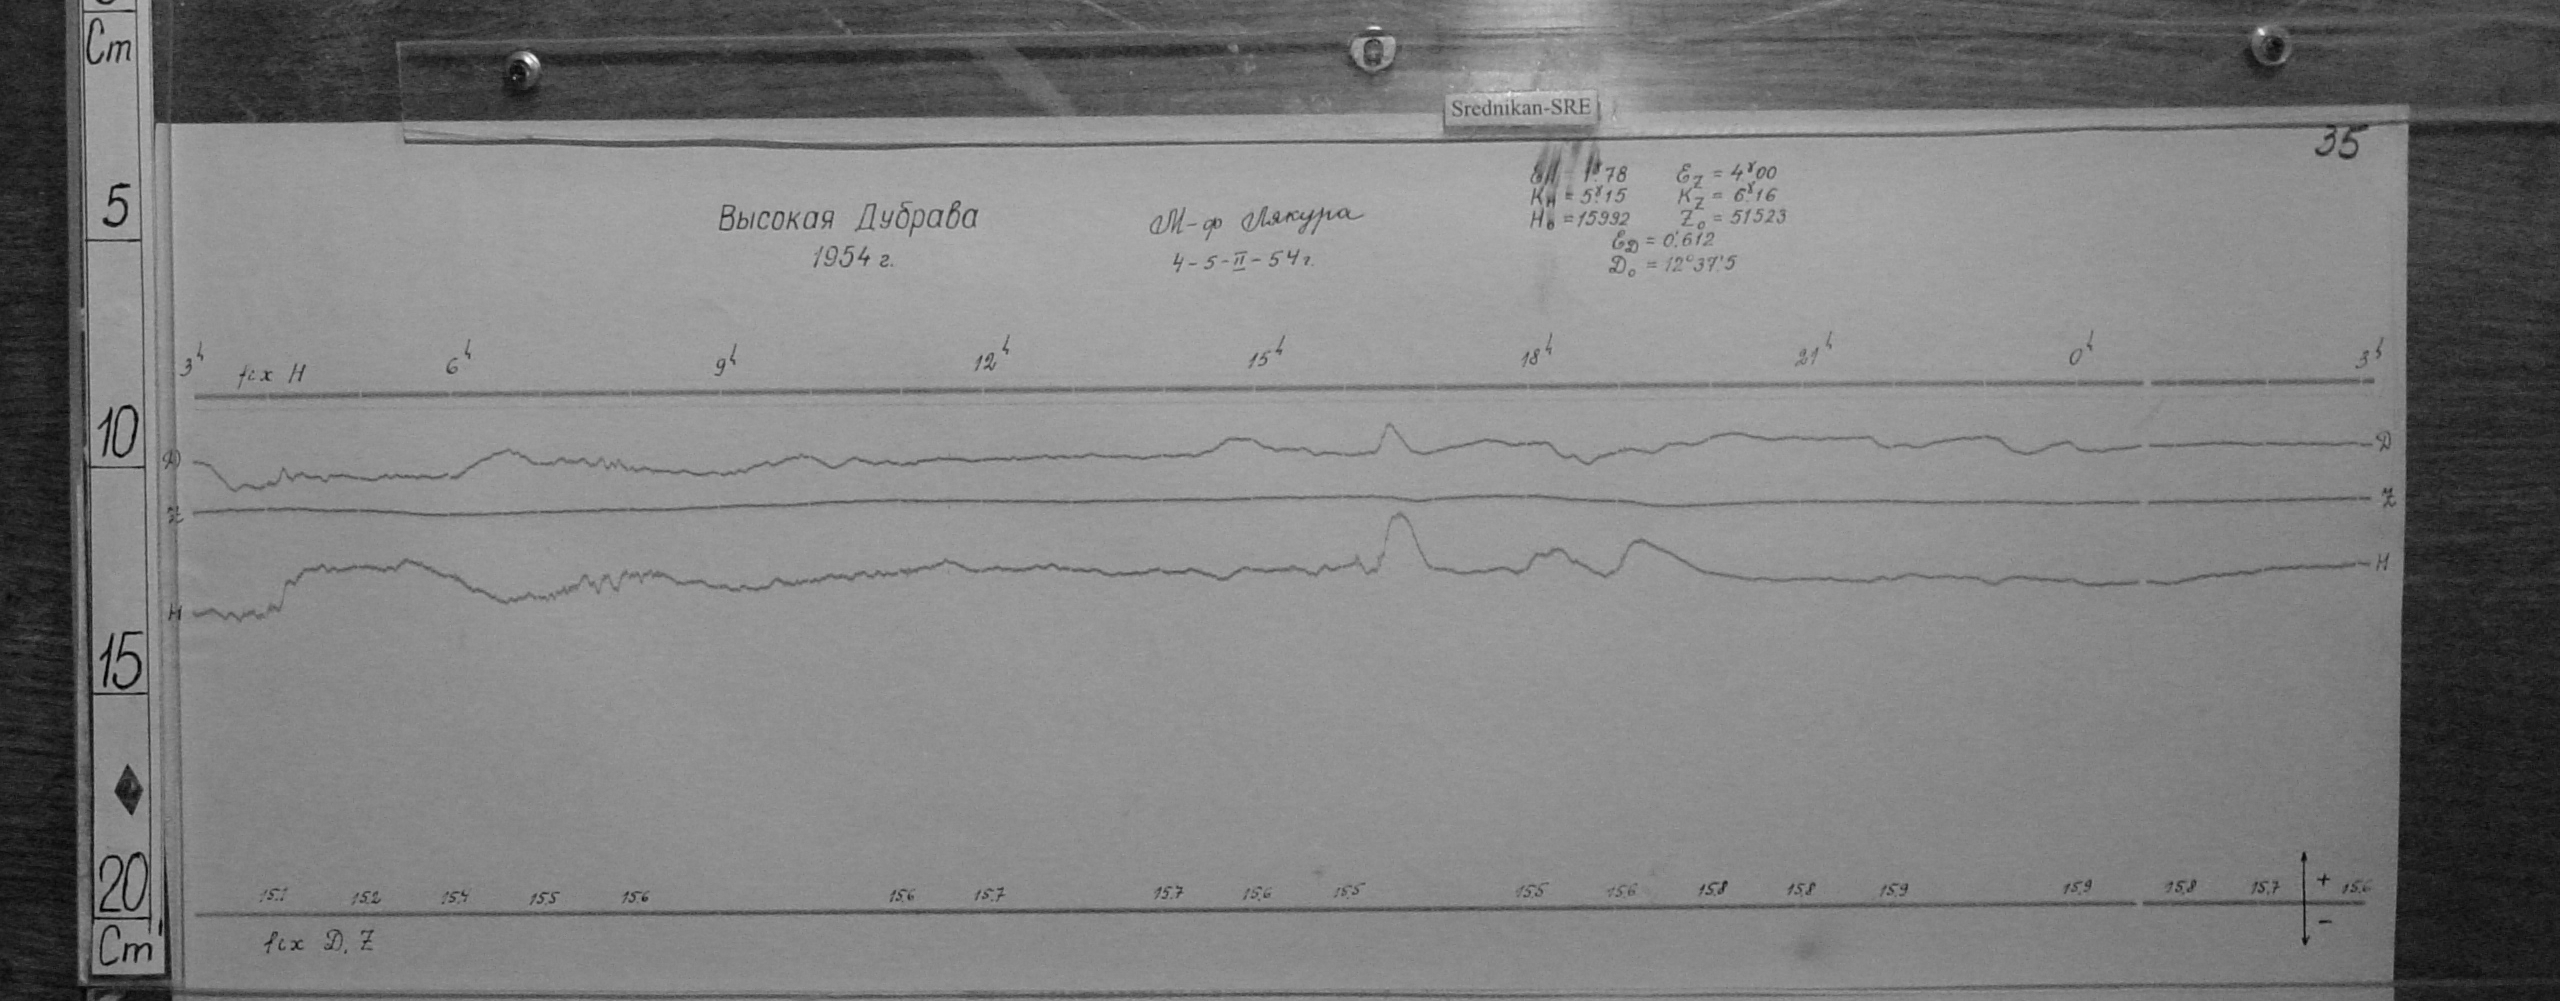 Cm
5
10
15
20
Cm
Srednikan-SRE
35
Высокая Дубрава
1954 г.
М-ф Лякура
4-5-II-54 г.
1.78
Kн = 5ˠ15
H₀ = 15992
Ɛz = 4ˠ00
Kz = 6ˠ16
Z₀ = 51523
ƐD = 0'.612
D₀ = 12°37'.5
3h 6h 9h 12h 15h 18h 21h 0h 3h
fcx H
D D
Z Z
H H
15.1 15.2 15.4 15.5 15.6 15.6 15.7 15.7 15.6 15.5 15.5 15.6 15.8 15.8 15.9 15.9 15.8 15.7 15.6
+
−
fcx D, Z